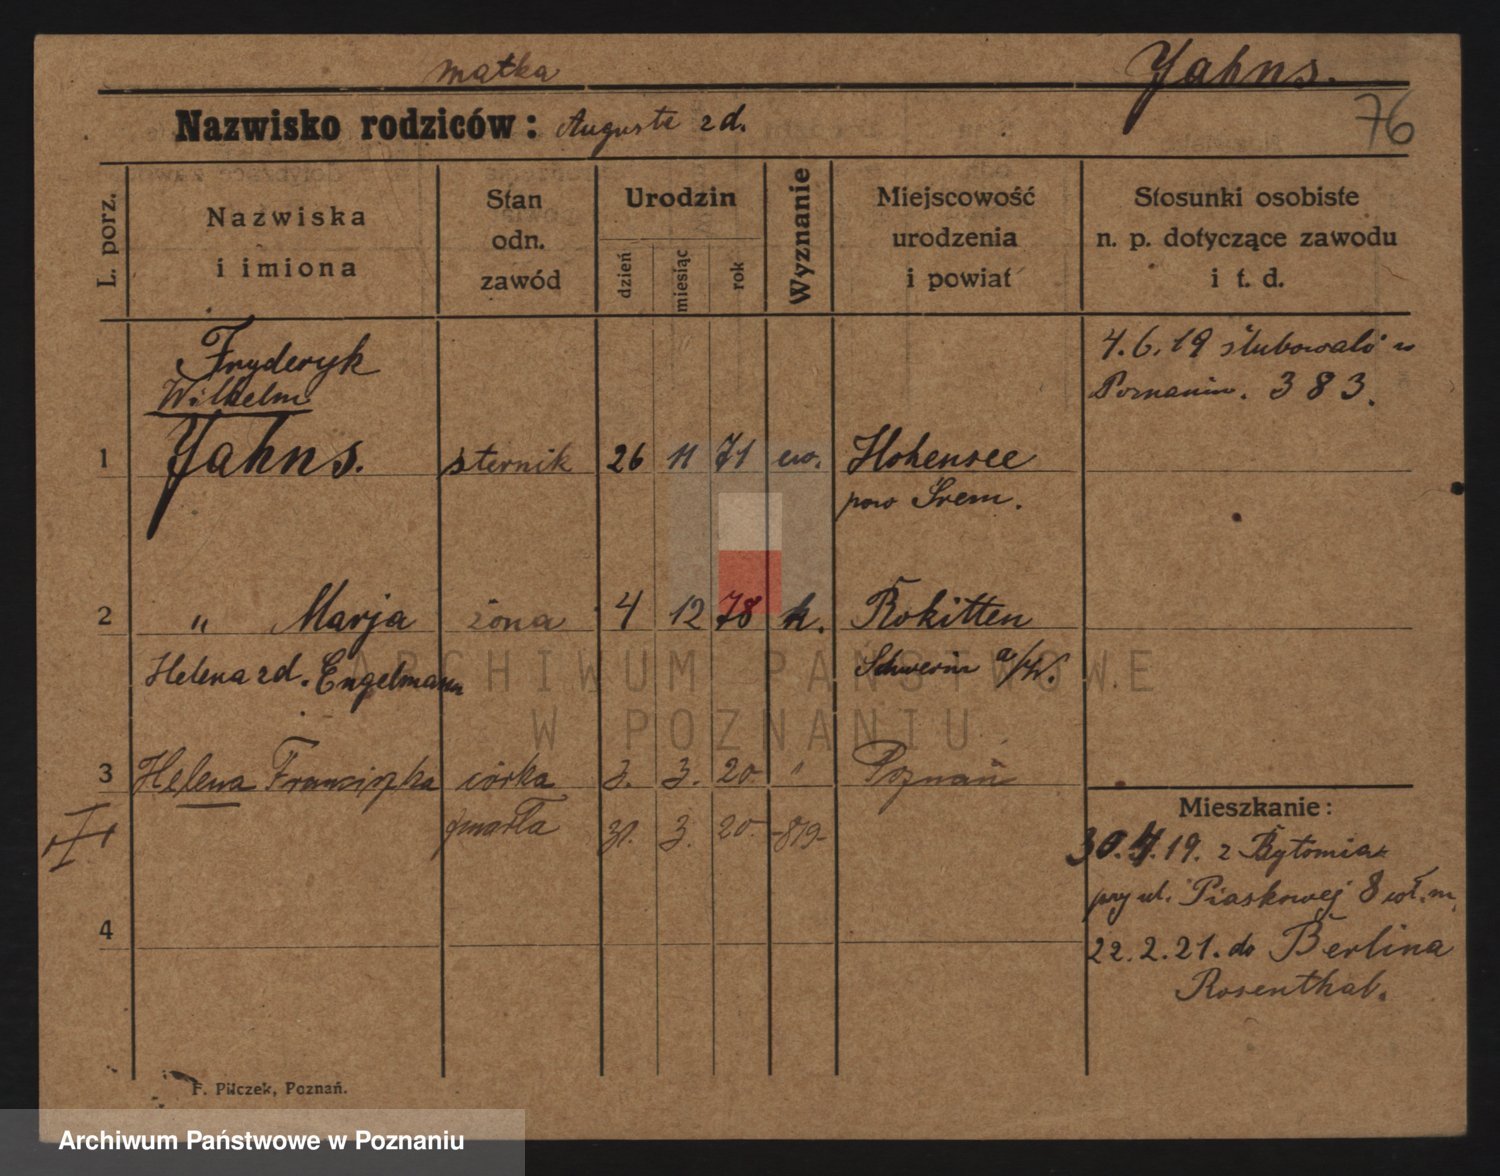 matka
Yahns.
Nazwisko rodziców: Auguste zd.
76
L. porz.
Nazwiska
i imiona
Stan
odn.
zawód
Urodzin
dzień
miesiąc
rok
Wyznanie
Miejscowość
urodzenia
i powiat
Stosunki osobiste
n. p. dotyczące zawodu
i t. d.
4.6.19 slubowali w
Poznaniu. 383.
Fryderyk
Wilhelm
1 Yahns. sternik 26 11 71 ew. Hohensee
pow Śrem.
2 " Marja żona 4 12 78 k. Rokitten
Helena zd. Engelmann Schwerin a/W.
3 Helena Franciszka córka 3. 3. 20. " Poznań
zmarła 31. 3. 20. -819-
4
Mieszkanie:
30.4.19. z Bytomia
przy ul. Piaskowej 8 wł. m.
22.2.21. do Berlina
Rosenthal.
F. Pilczek, Poznań.
ARCHIWUM PAŃSTWOWE
W POZNANIU
Archiwum Państwowe w Poznaniu